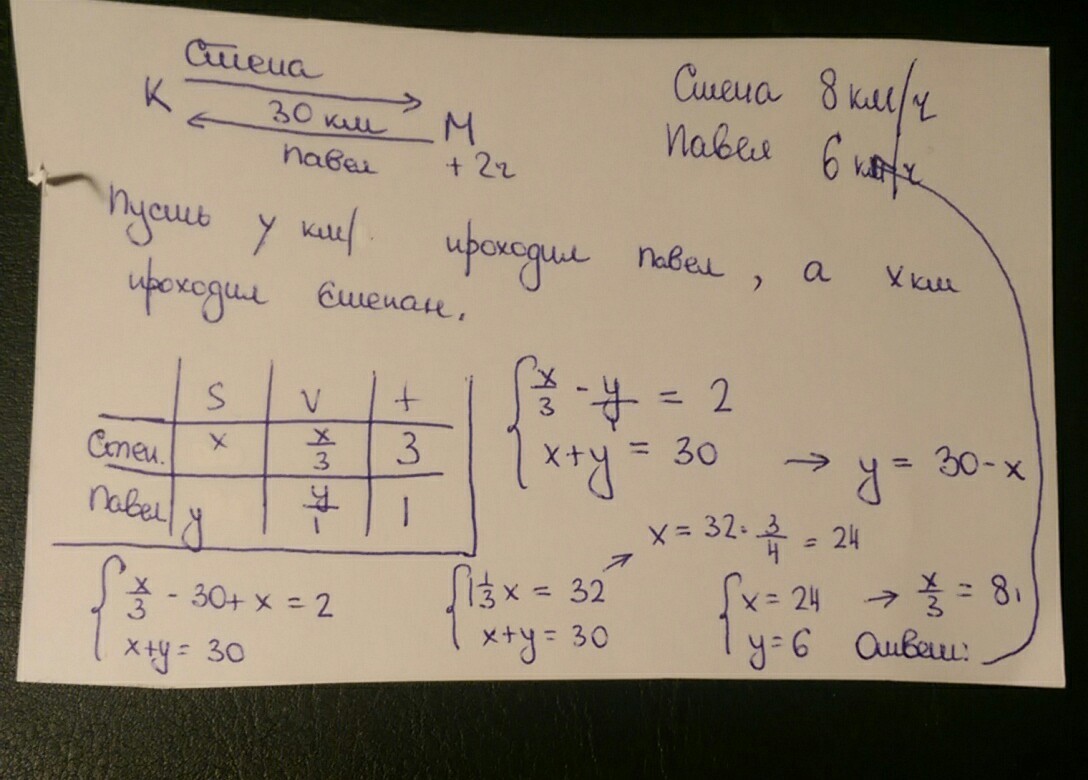 Степа
К 30 км М
Павел + 2ч
Степа 8 км/ч
Павел 6 км/ч
Пусть y км/ проходил павел, а x км
проходил Степан.
S V t
Степ. x x/3 3
Павел y y/1 1
{ x/3 - y/1 = 2
x+y = 30 → y = 30-x
x = 32 · 3/4 = 24
{ x/3 - 30 + x = 2
x+y = 30
{ 1 1/3 x = 32
x+y = 30
{ x = 24 → x/3 = 8,
y = 6 Ответ: